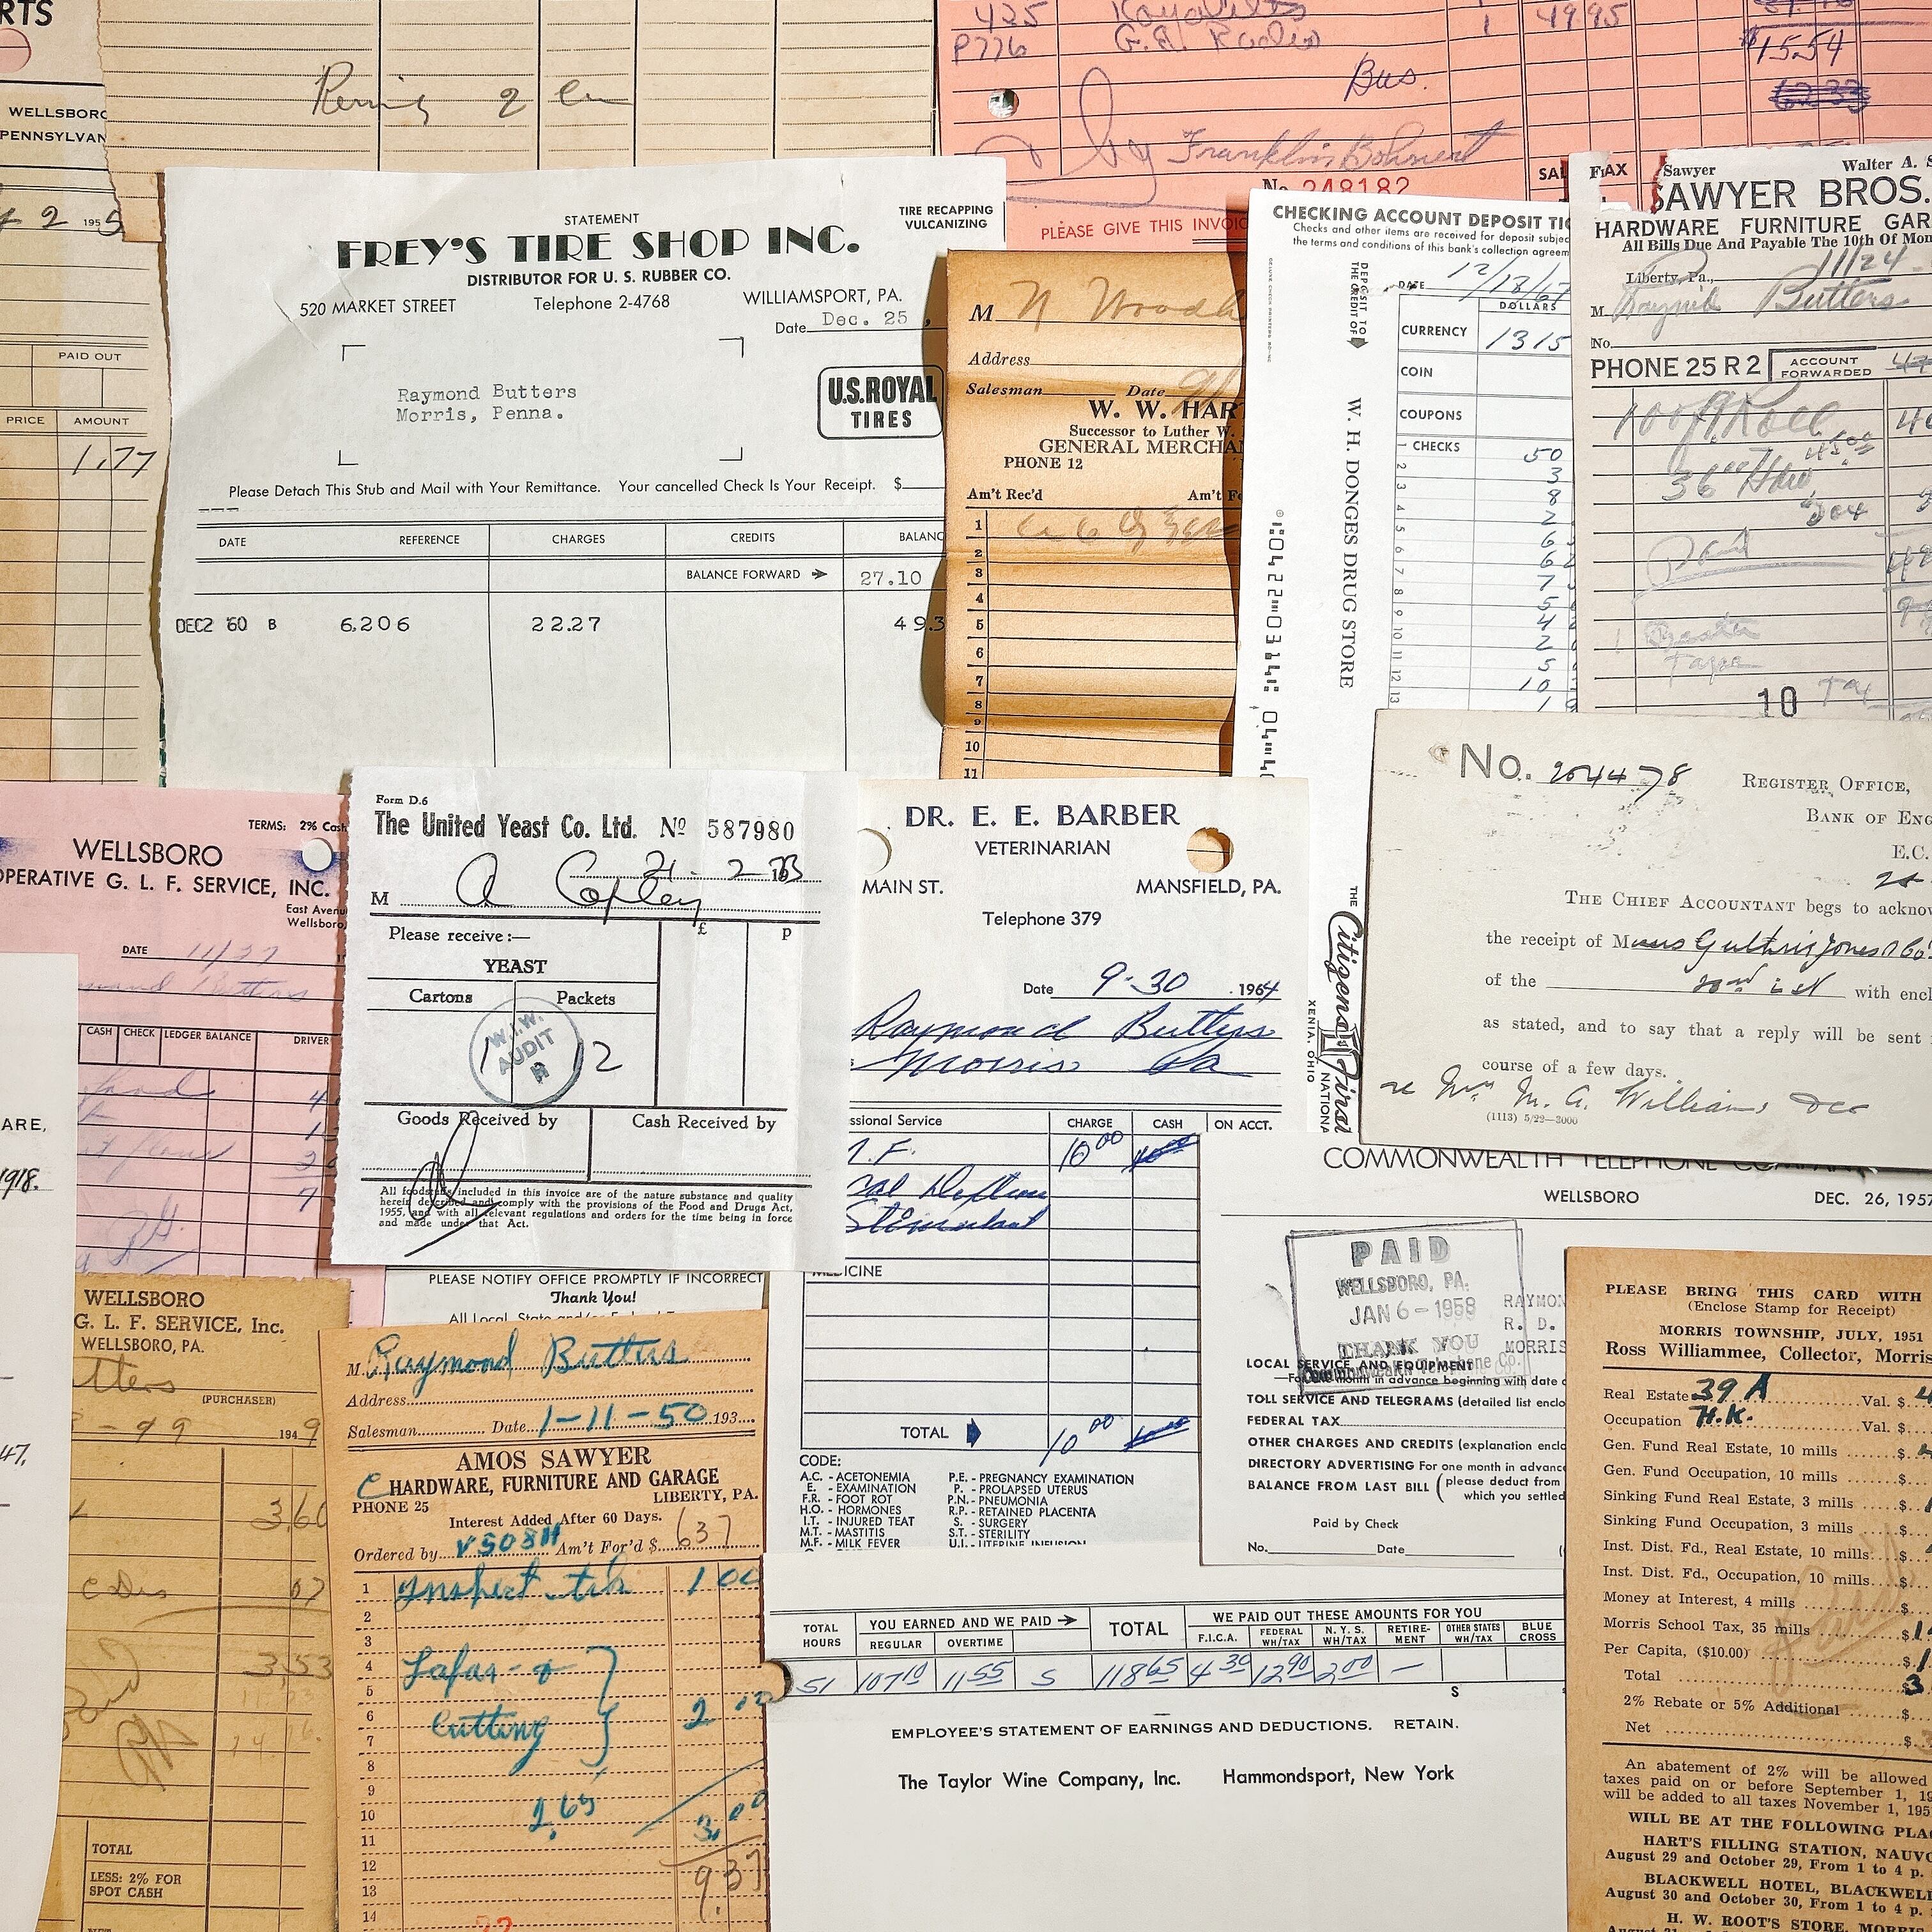 RTS
WELLSBORO
PENNSYLVAN
2 1955
PAID OUT
PRICE AMOUNT
1.77
2
425
P776 G.E. Radio
1 49.95
$15.54
Bus.
by Franklin Bohnert
No 248182
PLEASE GIVE THIS INVOIC
SAL
STATEMENT
TIRE RECAPPING
VULCANIZING
FREY'S TIRE SHOP INC.
DISTRIBUTOR FOR U. S. RUBBER CO.
520 MARKET STREET Telephone 2-4768 WILLIAMSPORT, PA.
Date Dec. 25
Raymond Butters
Morris, Penna.
U.S. ROYAL
TIRES
Please Detach This Stub and Mail with Your Remittance. Your cancelled Check Is Your Receipt. $
DATE REFERENCE CHARGES CREDITS BALANC
BALANCE FORWARD → 27.10
DEC 2 '60 B 6,206 22.27 49.3
M
Address
Salesman Date
W. W. HART
Successor to Luther W.
GENERAL MERCHAN
PHONE 12
Am't Rec'd Am't Fo
1
2
3
4
5
6
7
8
9
10
11
CHECKING ACCOUNT DEPOSIT TIC
Checks and other items are received for deposit subjec
the terms and conditions of this bank's collection agreem
DATE 12/18/67
DEPOSIT TO
THE CREDIT OF
W. H. DONGES DRUG STORE
DOLLARS
CURRENCY 1315
COIN
COUPONS
CHECKS 50
2 3
3 8
4 2
5 6
6 6
7 7
8 5
9 4
10 2
11 5
12 10
13 1
THE
Citizens First
NATIONA
XENIA, OHIO
Sawyer Walter A. S
SAWYER BROS.
HARDWARE FURNITURE GAR
All Bills Due And Payable The 10th Of Mon
Liberty, Pa., 11/24
M Butters
No.
PHONE 25 R 2 ACCOUNT
FORWARDED
100 ft Roll
36"
Paid
Tape
10 Tax
No. 204478
REGISTER OFFICE,
BANK OF ENG
E.C.
THE CHIEF ACCOUNTANT begs to acknow
the receipt of Messrs Guthrie Jones & Co's
of the 22nd inst with encl
as stated, and to say that a reply will be sent
course of a few days.
re Mrs M. A. Williams, Dec
(1113) 5/22—3000
TERMS: 2% Cash
WELLSBORO
OPERATIVE G. L. F. SERVICE, INC.
East Avenu
Wellsboro,
DATE 11/27
CASH CHECK LEDGER BALANCE DRIVER
Form D.6
The United Yeast Co. Ltd. No 587980
21. 2 1973
M A Copley
Please receive:— £ p
YEAST
Cartons Packets
1 12
W.I.W.
AUDIT
R
Goods Received by Cash Received by
All foodstuffs included in this invoice are of the nature substance and quality
herein described and comply with the provisions of the Food and Drugs Act,
1955, and with all relevant regulations and orders for the time being in force
and made under that Act.
DR. E. E. BARBER
VETERINARIAN
MAIN ST. MANSFIELD, PA.
Telephone 379
Date 9-30 1964
Raymond Butters
Morris Pa
ssional Service CHARGE CASH ON ACCT.
10 00
MEDICINE
TOTAL 10 00
CODE:
A.C. - ACETONEMIA
E. - EXAMINATION
F.R. - FOOT ROT
H.O. - HORMONES
I.T. - INJURED TEAT
M.T. - MASTITIS
M.F. - MILK FEVER
P.E. - PREGNANCY EXAMINATION
P. - PROLAPSED UTERUS
P.N. - PNEUMONIA
R.P. - RETAINED PLACENTA
S. - SURGERY
S.T. - STERILITY
U.I. - UTERINE INFUSION
COMMONWEALTH TELEPHONE COMPANY
WELLSBORO DEC. 26, 1957
PAID
WELLSBORO, PA.
JAN 6 - 1958
THANK YOU
Commonwealth Telephone Co.
RAYMON
R. D.
MORRIS
LOCAL SERVICE AND EQUIPMENT
For one month in advance beginning with date o
TOLL SERVICE AND TELEGRAMS (detailed list enclo
FEDERAL TAX
OTHER CHARGES AND CREDITS (explanation enclo
DIRECTORY ADVERTISING For one month in advance
BALANCE FROM LAST BILL (please deduct from
which you settled
Paid by Check
No. Date
ARE,
1918.
47.
PLEASE NOTIFY OFFICE PROMPTLY IF INCORRECT
Thank You!
All Local, State
WELLSBORO
G. L. F. SERVICE, Inc.
WELLSBORO, PA.
tters
(PURCHASER)
1949
3.60
67
3.53
TOTAL
LESS: 2% FOR
SPOT CASH
M. Raymond Butters
Address
Salesman Date 1-11-50 193
AMOS SAWYER
HARDWARE, FURNITURE AND GARAGE
PHONE 25 LIBERTY, PA.
Interest Added After 60 Days.
Ordered by V508H Am't For'd $ 637
1 Inspect 1 00
2
3
4
5
6 Cutting 2 00
7
8
9
10 2.65
11 3.00
12
13 9.37
14
TOTAL
HOURS
YOU EARNED AND WE PAID → TOTAL WE PAID OUT THESE AMOUNTS FOR YOU
REGULAR OVERTIME F.I.C.A. FEDERAL
WH/TAX N.Y.S.
WH/TAX RETIRE-
MENT OTHER STATES
WH/TAX BLUE
CROSS
51 107 10 11 55 S 118 65 4 30 12 90 2 00 —
S
EMPLOYEE'S STATEMENT OF EARNINGS AND DEDUCTIONS. RETAIN.
The Taylor Wine Company, Inc. Hammondsport, New York
PLEASE BRING THIS CARD WITH
(Enclose Stamp for Receipt)
MORRIS TOWNSHIP, JULY, 1951
Ross Williammee, Collector, Morris
Real Estate 39 A Val. $
Occupation H.K. Val. $
Gen. Fund Real Estate, 10 mills $
Gen. Fund Occupation, 10 mills $
Sinking Fund Real Estate, 3 mills $
Sinking Fund Occupation, 3 mills $
Inst. Dist. Fd., Real Estate, 10 mills $
Inst. Dist. Fd., Occupation, 10 mills $
Money at Interest, 4 mills $
Morris School Tax, 35 mills $
Per Capita, ($10.00) $
Total $
2% Rebate or 5% Additional $
Net $
An abatement of 2% will be allowed
taxes paid on or before September 1, 19
will be added to all taxes November 1, 195
WILL BE AT THE FOLLOWING PLA
HART'S FILLING STATION, NAUVO
August 29 and October 29, From 1 to 4 p.
BLACKWELL HOTEL, BLACKWEL
August 30 and October 30, From 1 to 4 p.
H. W. ROOT'S STORE, MORRIS